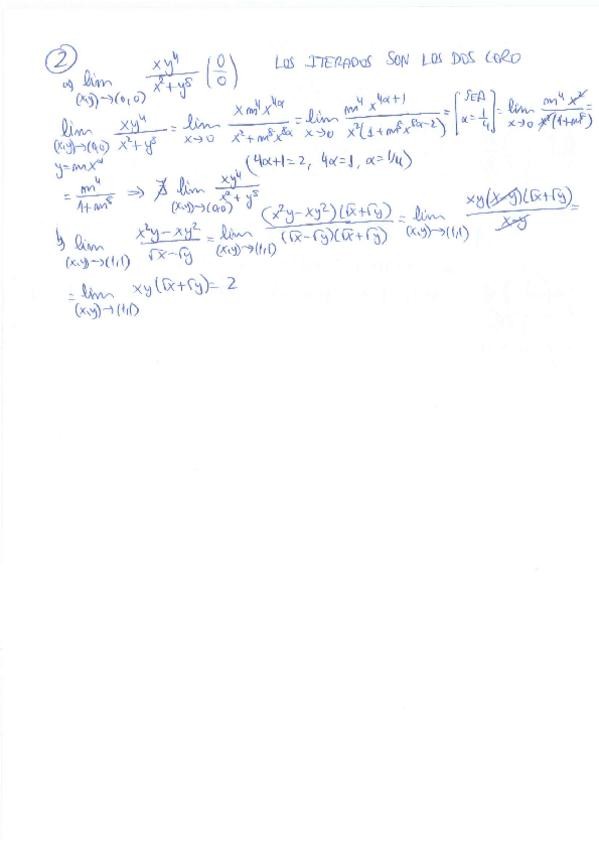 ② a) lim (x,y)→(0,0) xy⁴/(x²+y⁸) (0/0) LOS ITERADOS SON LOS DOS CERO
lim (x,y)→(0,0) y=mx^α xy⁴/(x²+y⁸) = lim x→0 xm⁴x^(4α)/(x²+m⁸x^(8α)) = lim x→0 m⁴x^(4α+1)/(x²(1+m⁸x^(8α-2))) = [SEA α=1/4] = lim x→0 m⁴x²/(x²(1+m⁸)) =
(4α+1=2, 4α=1, α=1/4)
= m⁴/(1+m⁸) ⇒ ∄ lim (x,y)→(0,0) xy⁴/(x²+y⁸)
b) lim (x,y)→(1,1) (x²y-xy²)/(√x-√y) = lim (x,y)→(1,1) (x²y-xy²)(√x+√y)/((√x-√y)(√x+√y)) = lim (x,y)→(1,1) xy(x-y)(√x+√y)/(x-y) =
= lim (x,y)→(1,1) xy(√x+√y) = 2